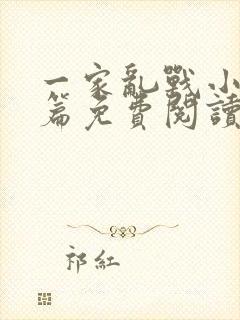 一家亂戰小
篇免費閱讀
祁紅